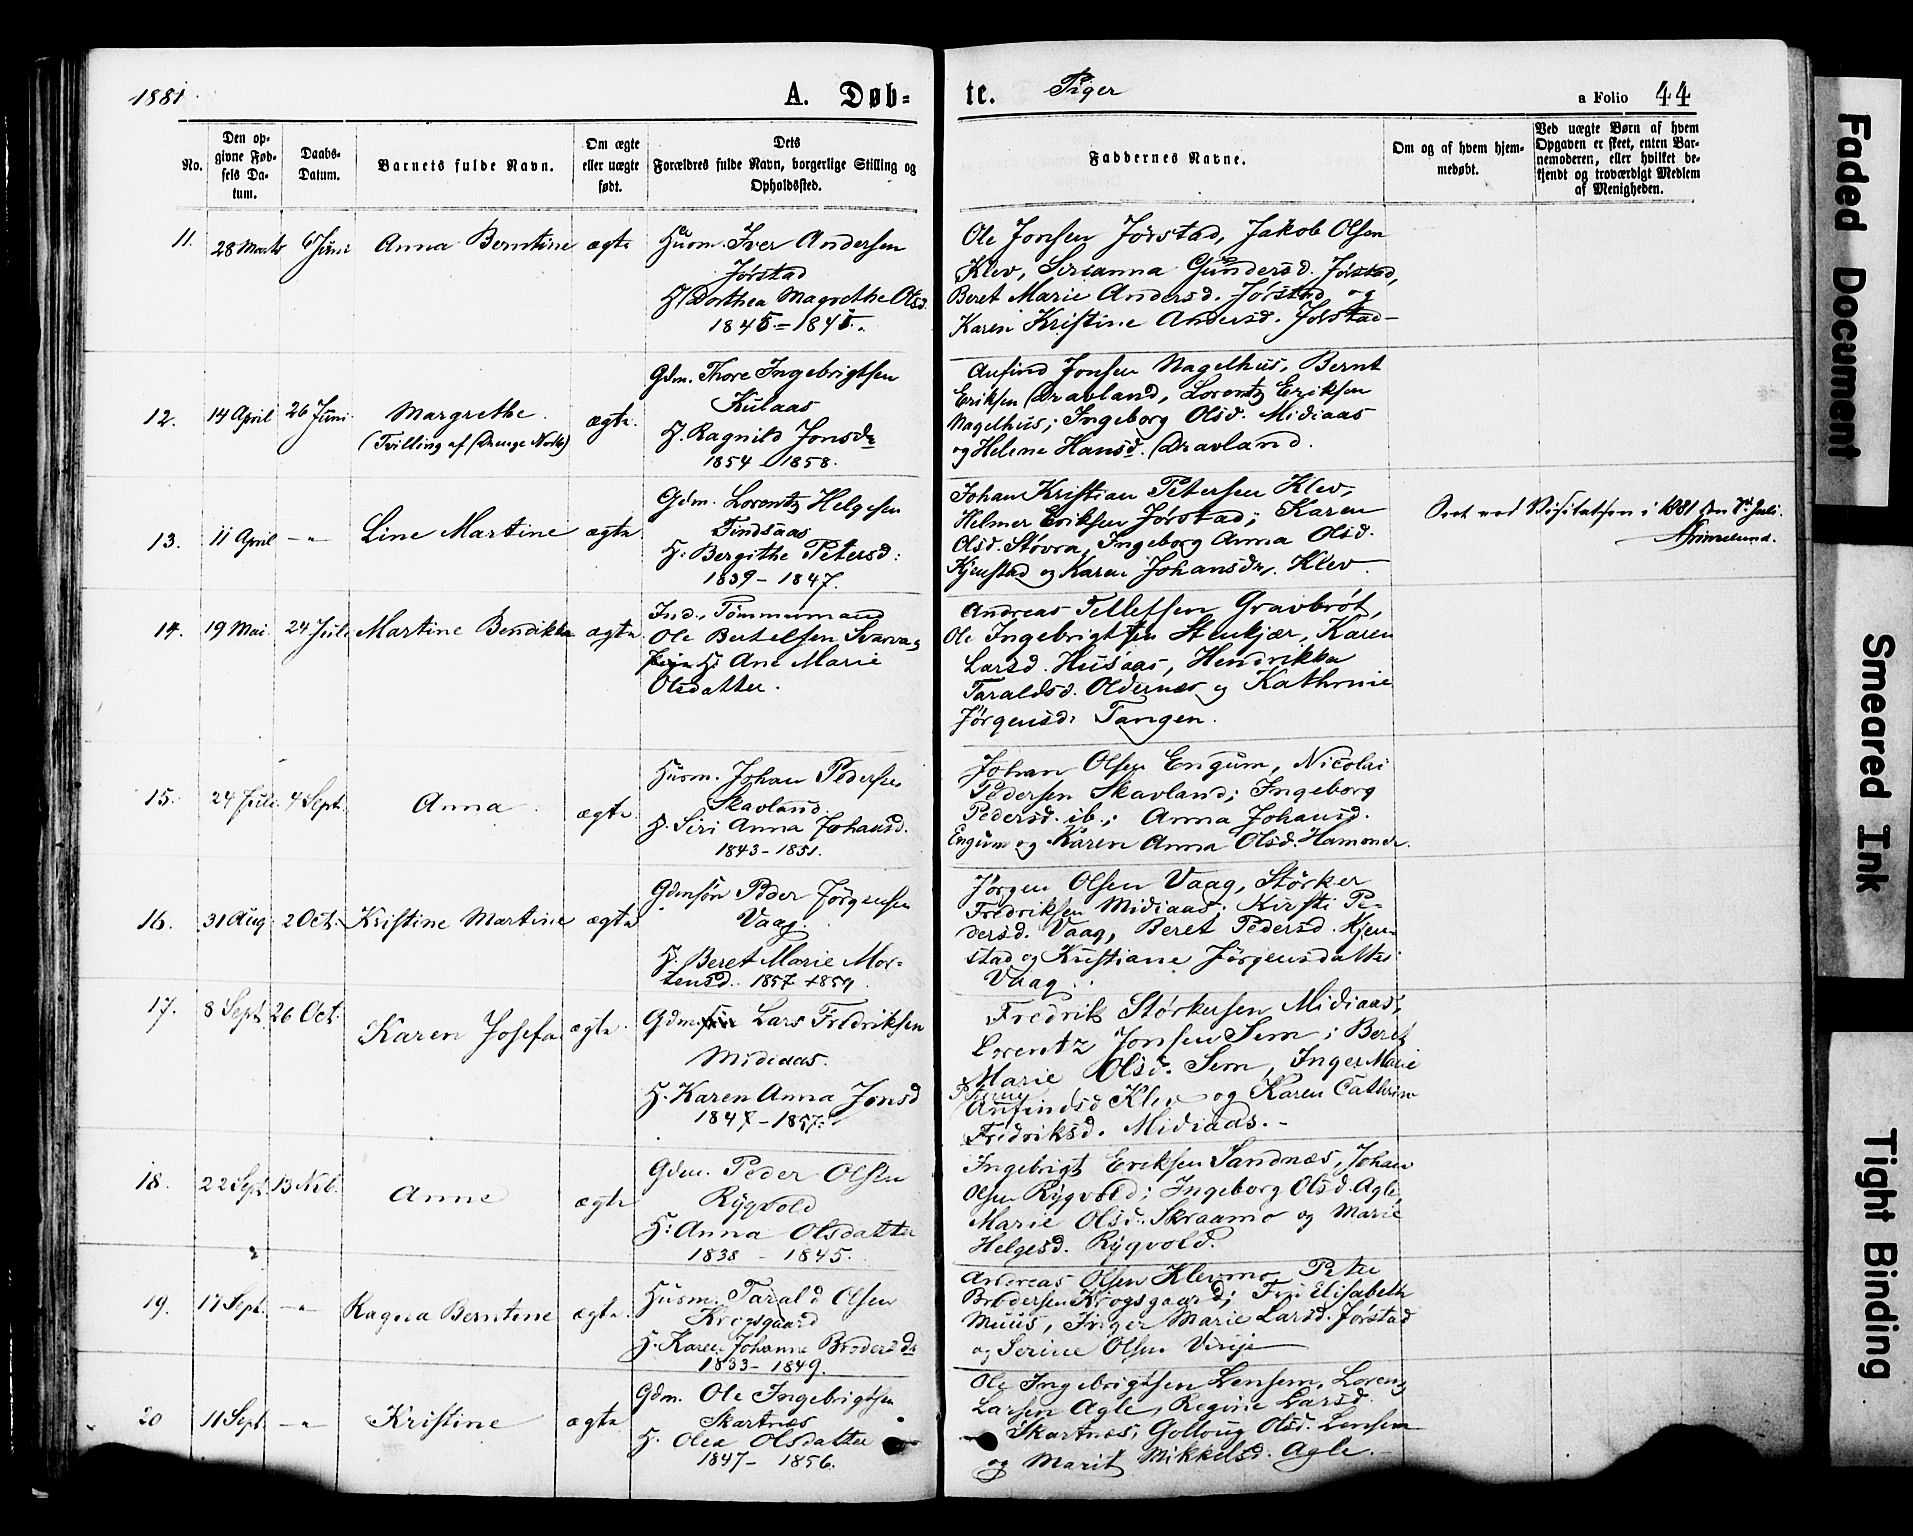 1881.
A. Døb=
te. Piger
a Folio 44
No.
Den op-
givne Fød-
sels Da-
tum.
Daabs-
Datum.
Barnets fulde Navn.
Om ægte
eller uægte
født.
Dets
Forældres fulde Navn, borgerlige Stilling og
Opholdssted.
Faddernes Navne.
Om og af hvem hjem-
medøbt.
Ved uægte Børn af hvem
Opgaven er skeet, enten Bar-
nemoderen, eller hvilket be-
kjendt og troværdigt Medlem
af Menigheden.
11. 28 Marts 6 Juni Anna Berntine ægte
Husm. Iver Andersen
Jørstad
H. Dorthea Magrethe Olsd.
1845 = 1845.
Ole Jonsen Jørstad, Jakob Olsen
Klev, Serianna Gundersd. Jørstad,
Beret Marie Andersd. Jørstad og
Karen Kristine Andersd. Jørstad
12. 14 April 26 Juni Margrethe.
(Tvilling af Drenge No 16) ægte.
Gdm. Thore Ingebrigtsen
Kulaas
H. Ragnild Jonsdr
1854 - 1858.
Anfind Jonsen Nagelhus, Bernt
Eriksen Dravland, Lorentz Eriksen
Nagelhus; Ingeborg Olsd. Midiaas
og Helene Hansd. Dravland.
13. 11 April - " Line Martine ægte
Gdm. Lorentz Helgesen
Findsaas
H: Bergithe Petersd:
1839 - 1847.
Johan Kristian Petersen Klev,
Helmer Eriksen Jørstad; Karen
Olsd. Støvra, Ingeborg Anna Olsd.
Kjenstad og Karen Johansdr. Klev.
Seet ved Visitatsen i 1881 den 7d Juli.
Grimelund.
14. 19 Mai. 24 Juli Martine Bendikka ægte
Ind., Tømmermand
Ole Bertelsen
H: Ane Marie
Olsdatter.
Andreas Tellefsen Gravbrøt,
Ole Ingebrigtsen Stenkjær, Karen
Larsd. Husaas, Hendrikka
Taraldsd. Oldernæs og Kathrine
Jørgensd: Tangen.
15. 24 Juli 4 Sept. Anna ægte.
Husm. Johan Pedersen
Skavland.
H. Siri Anna Johansd.
1843 - 1851.
Johan Olsen Engum, Nicolai
Pedersen Skavland; Ingeborg
Pedersd. ib.; Anna Johansd.
Engum og Karen Anna Olsd. Hamoner.
16. 31 Aug 2 Oct. Kristine Martine ægte
Gdmsøn Peder Jørgensen
Vaag.
H. Beret Marie Mor-
tensd. 1857 1859
Jørgen Olsen Vaag, Størker
Fredriksen Midiaas; Kirsti Pe-
dersd. Vaag, Beret Pedersd. Kjen-
stad og Kristiane Jørgensdatter
Vaag.
17. 8 Sept. 26 Oct. Karen Josefa ægte.
Gdm. Lars Fredriksen
Midiaas.
H. Karen Anna Jonsd
1847 - 1857.
Fredrik Størkersen Midiaas,
Lorentz Jonsen Sem; Beret
Marie Olsd. Sem, Inger Marie
Anfindsd Klev og Karen Cathrine
Fredriksd. Midiaas.
18. 22 Sept 13 Nov. Anne ægte
Gdm. Peder Olsen
Rygvold
H: Anna Olsdatter
1838 - 1845.
Ingebrigt Eriksen Sandnæs, Johan
Olsen Rygvold; Ingeborg Olsd. Agle,
Marie Olsd. Skraamo og Marie
Helgesd. Rygvold.
19. 17 Sept. - " Ragna Berntine ægte.
Husm. Tarald Olsen
Krogsgaard
H. Karen Johanne Brodersdr
1833 - 1849.
Andreas Olsen Klevmo, Peter
Brodersen Krogsgaard; Elisabeth
Muus, Inger Marie Larsd. Jørstad
og Serine Olsen
20 11 Sept - " Kristine ægte
Gdm. Ole Ingebrigtsen
Skartnæs
H. Olea Olsdatter
1847 - 1856.
Ole Ingebrigtsen Lensem, Lorens
Larsen Agle, Regine Larsd.
Skartnæs; Golloug Olsd. Lensem
og Marit Mikkelsd. Agle.
Faded Document
Smeared Ink
Tight Binding